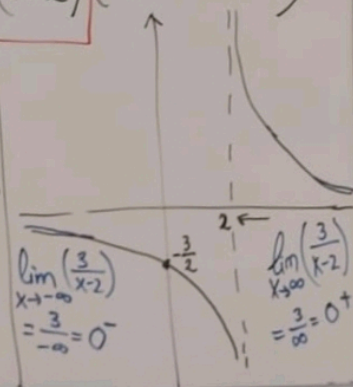 2 ←
-3/2
lim (3/x-2)
x→-∞
= 3/-∞ = 0⁻
lim (3/x-2)
x→∞
= 3/∞ = 0⁺